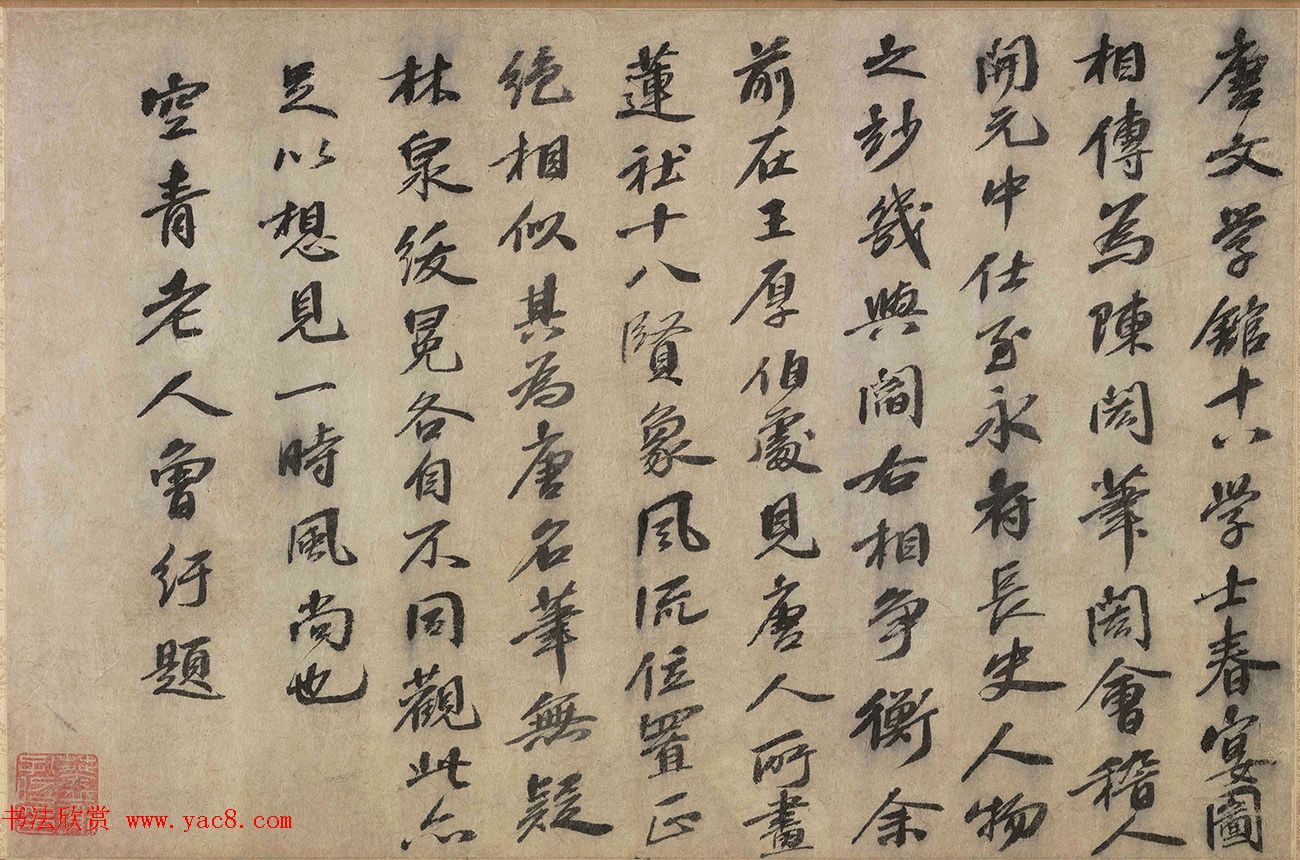 唐文学館十八学士春宴圖
相傳為陳閎筆閎會稽人
開元中仕至永府長史人物
之玅幾與閻右相爭衡余
前在王厚伯處見唐人所畫
蓮社十八賢象風流位置正
絕相似其為唐名筆無疑
林泉綬冕各自不同觀此亦
足以想見一時風尚也
空青老人曾紆題
书法欣赏 www.yac8.com